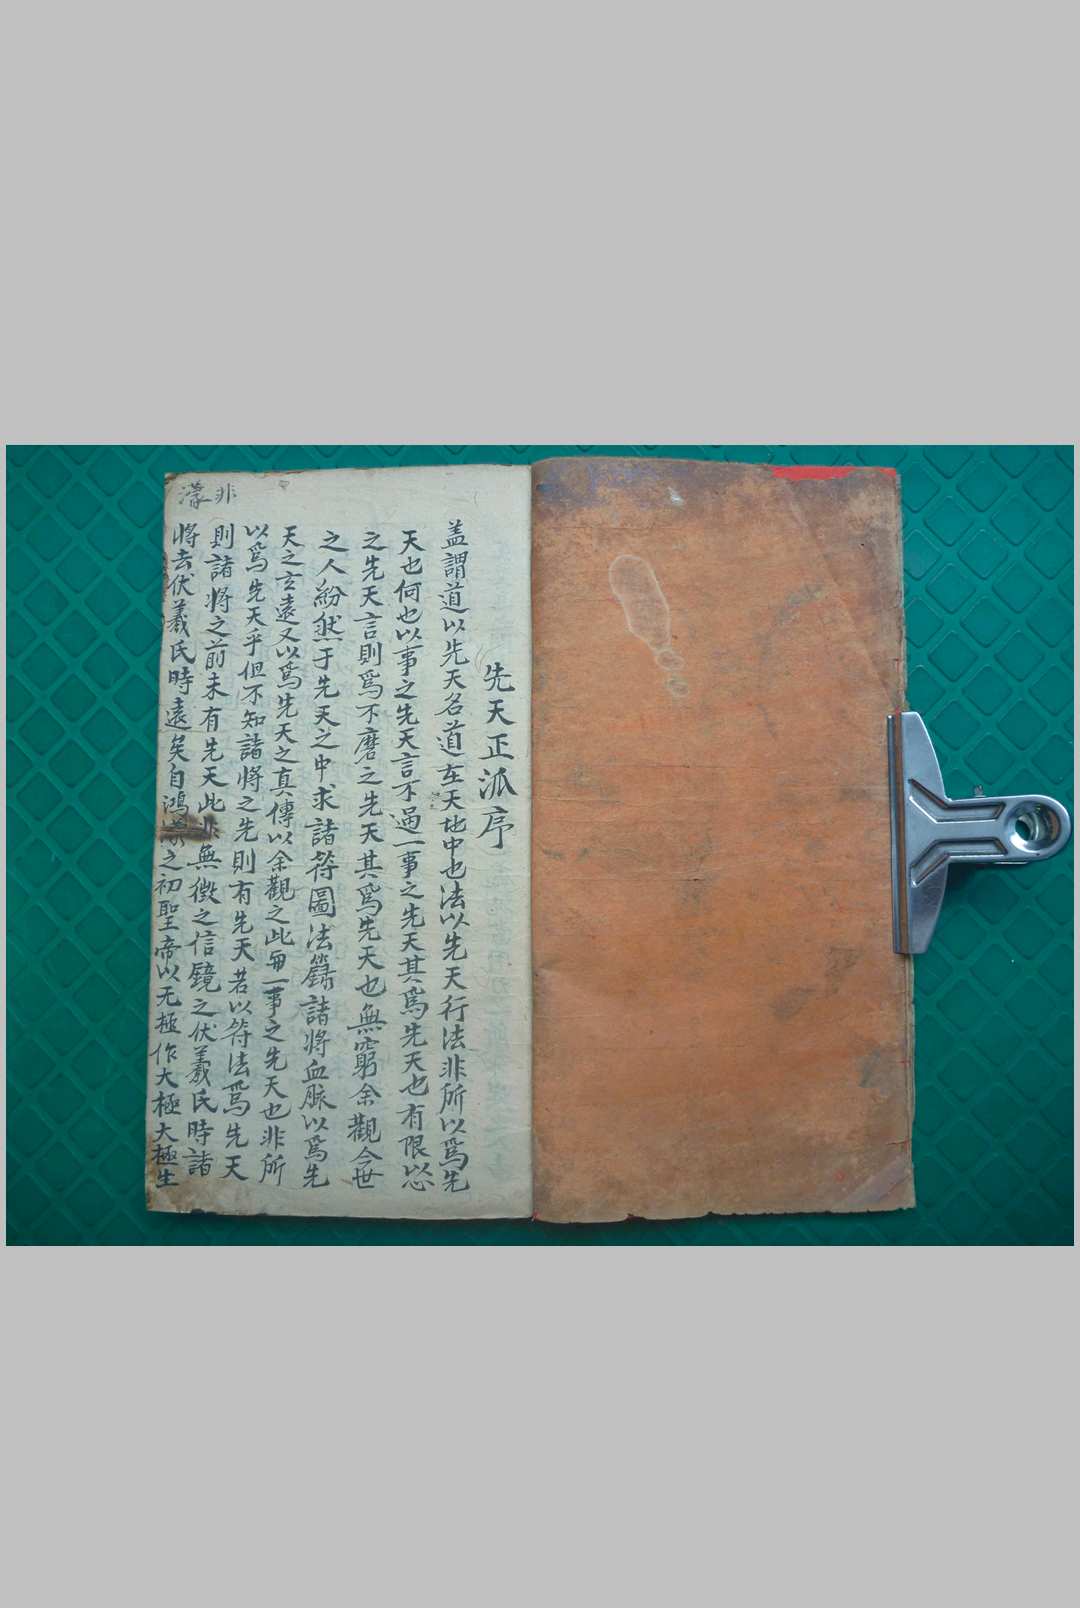 先天正派序
盖謂道以先天名道在天地中也法以先天行法非所以爲先
天也何也以事之先天言不過一事之先天其爲先天也有限以心
之先天言則爲不磨之先天其爲先天也無窮余觀今世
之人紛然于先天之中求諸符圖法籙諸將血脈以爲先
天之玄遠又以爲先天之真傳以余觀之此毎一事之先天也非所
以爲先天乎但不知諸將之先則有先天若以符法爲先天
則諸將之前未有先天此非無徴之信鏡之伏羲氏時諸
將去伏羲氏時遠矣自鴻濛之初聖帝以无極作大極大極生
非
濛